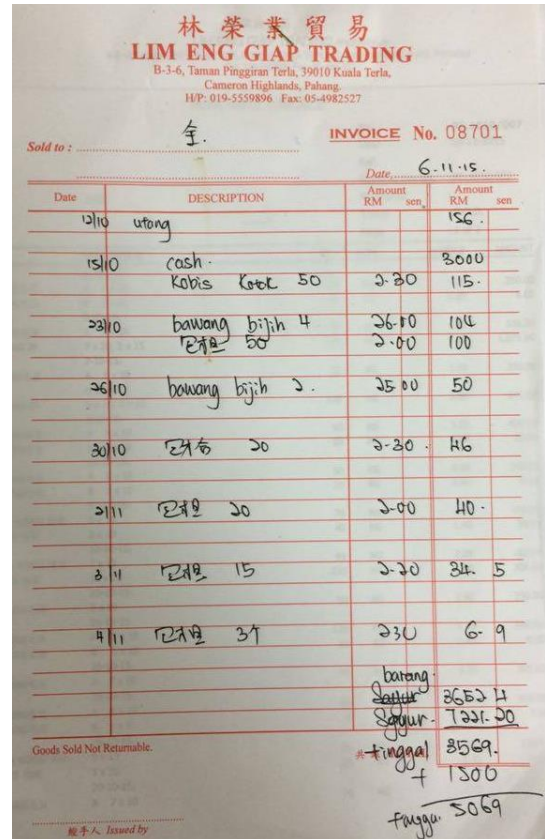 林榮業貿易
LIM ENG GIAP TRADING
B-3-6, Taman Pinggiran Terla, 39010 Kuala Terla,
Cameron Highlands, Pahang.
H/P: 019-5559896 Fax: 05-4982527
Sold to : 金.
INVOICE No. 08701
Date, 6.11.15.
Date DESCRIPTION Amount RM sen Amount RM sen
12/10 utang 156.
15/10 cash. 3000
Kobis 50 2-30 115.
23/10 bawang bijih 4 26-00 104
50 2-00 100
26/10 bawang bijih 2. 25 00 50
30/10 20 2-30 46
2/11 20 2-00 40.
3/11 15 2-30 34. 5
4/11 3个 230 6-9
barang.
Sayur 3652 4
Sayur. 7221.20
Goods Sold Not Returnable.
tinggal 3569.
+ 1500
5069
經手人 Issued by